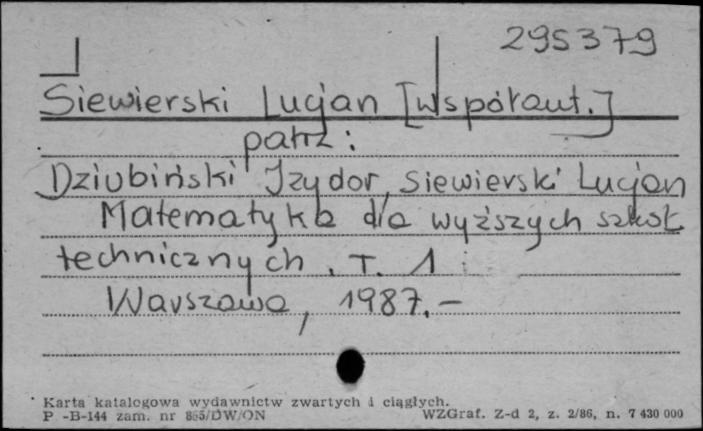 295379
Siewierski Lucjan [współaut.]
patrz:
Dziubiński Izydor, Siewierski Lucjan
Matematyka dla wyższych szkół
technicznych. T. 1
Warszawa, 1987.-
Karta katalogowa wydawnictw zwartych i ciągłych.
P-B-144 zam. nr 855/DW/ON WZGraf. Z-d 2, z. 2/86, n. 7 430 000